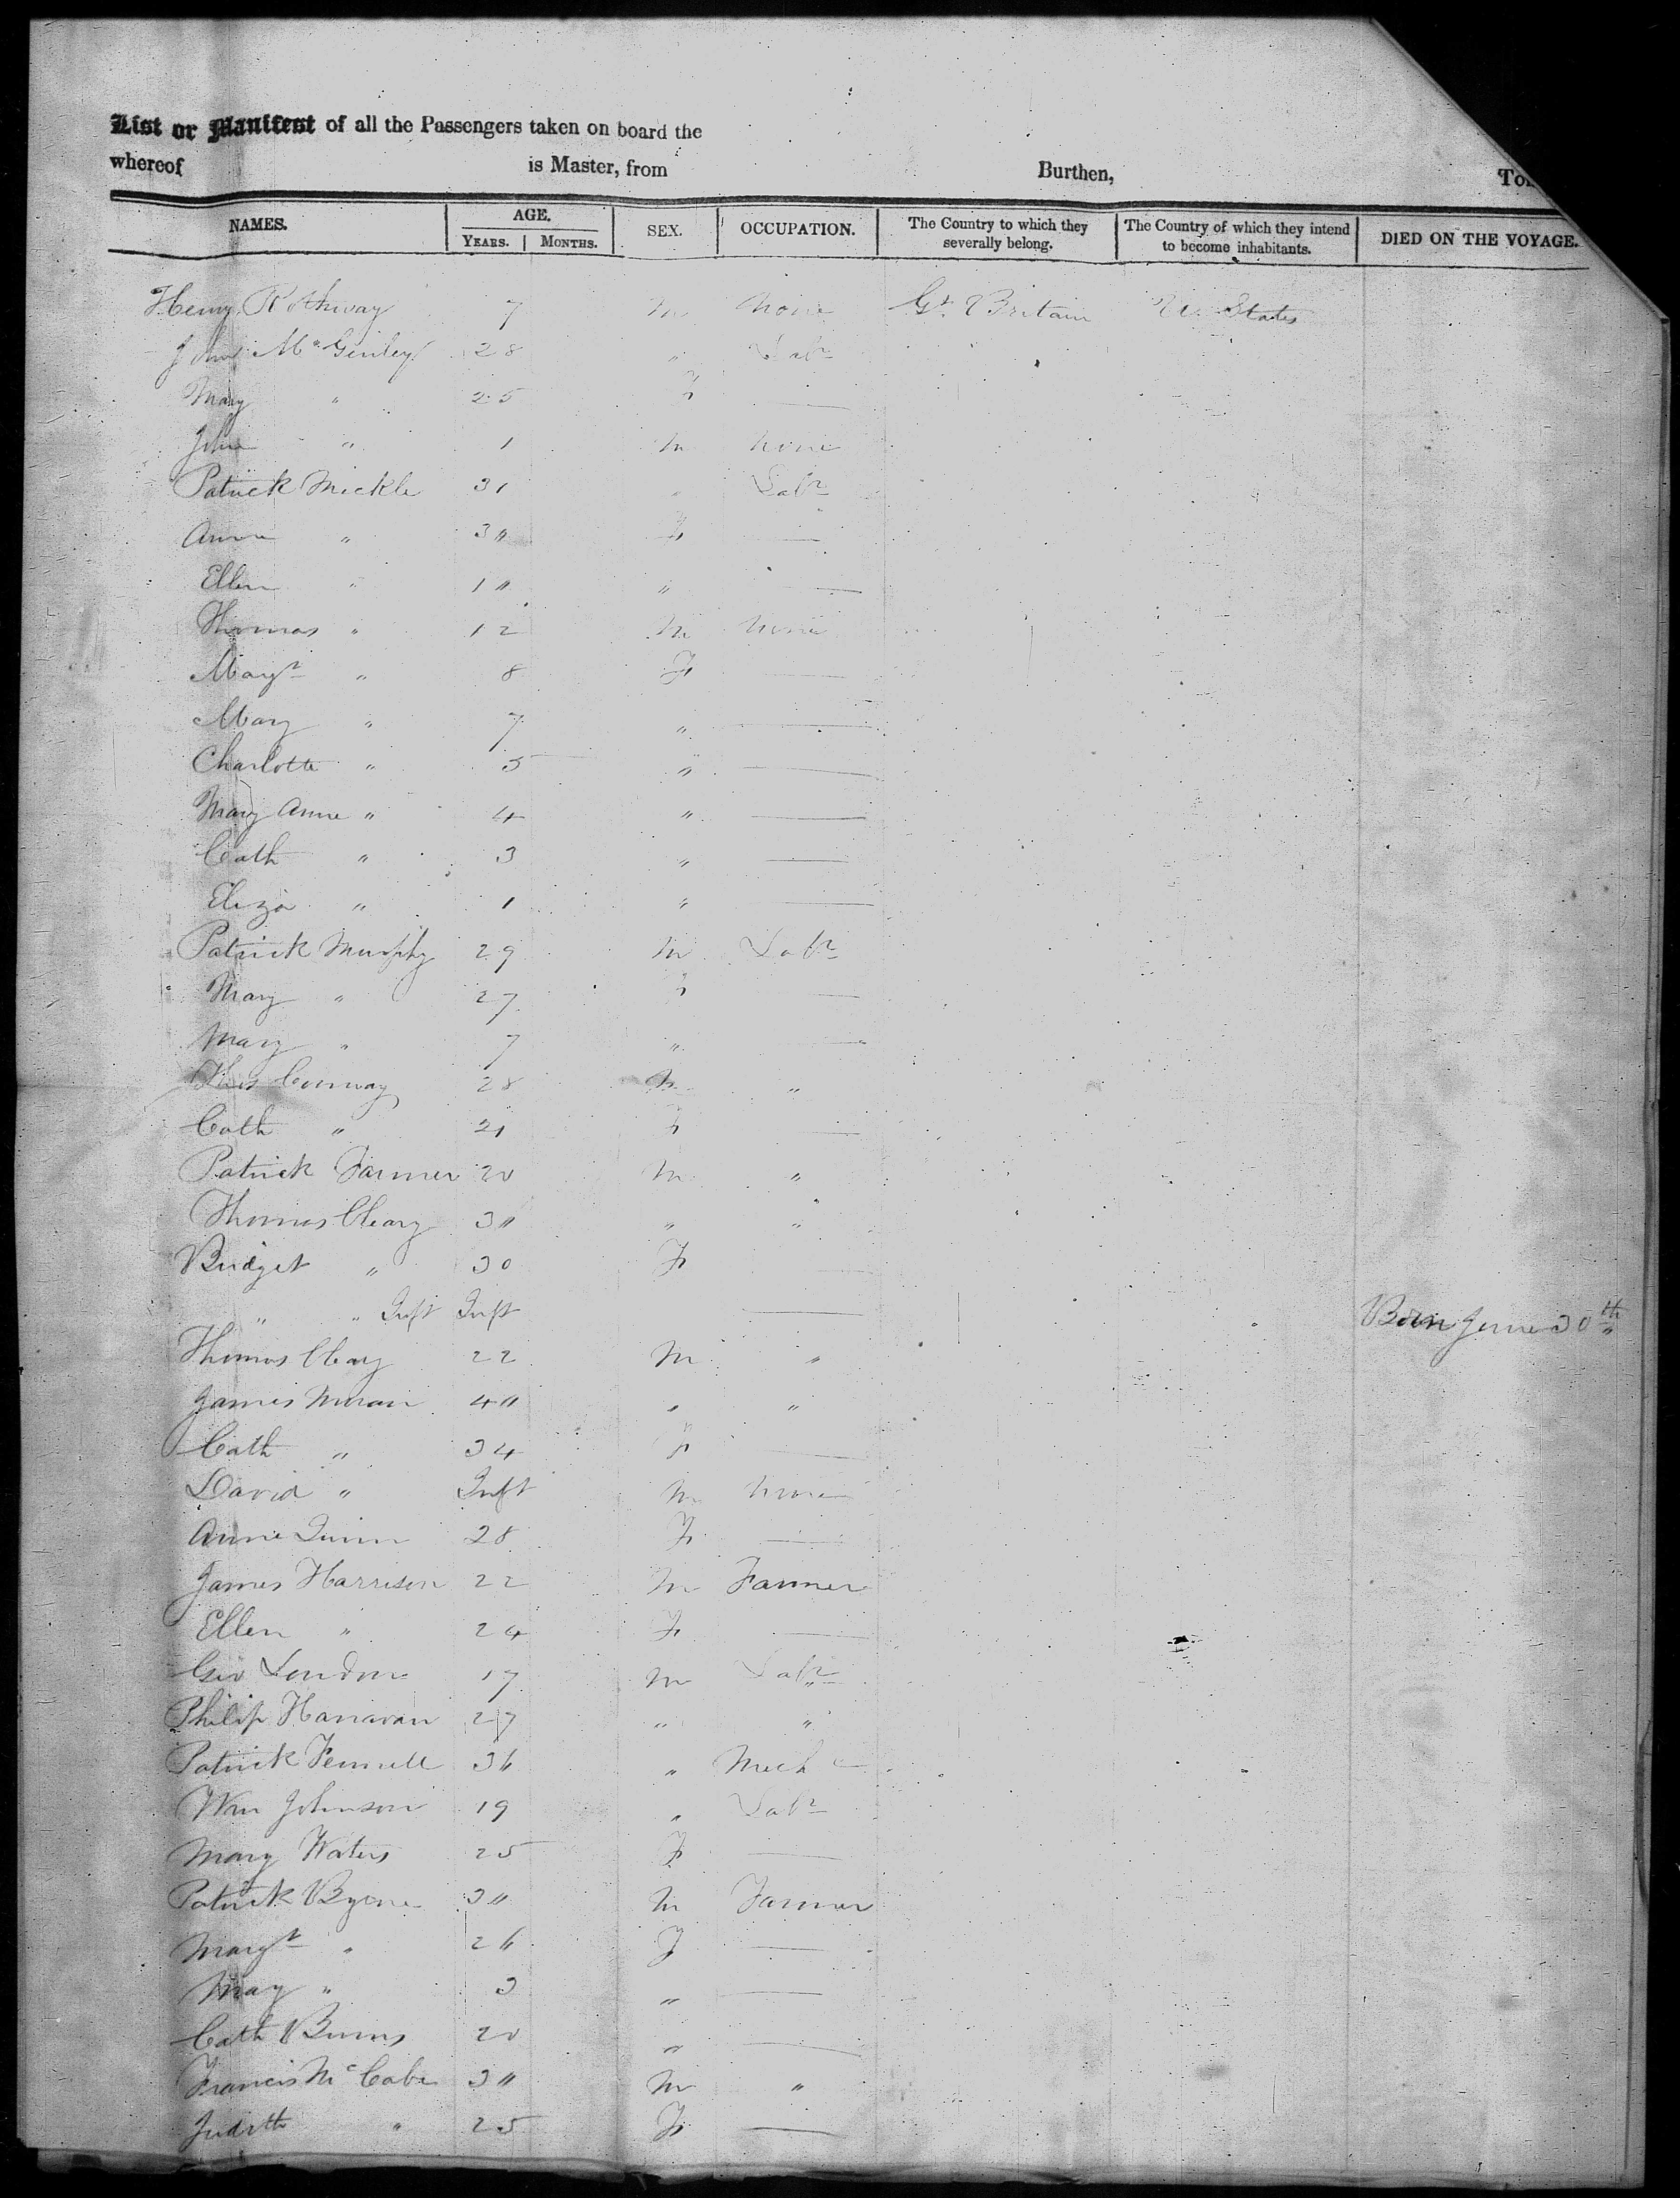 List or Manifest of all the Passengers taken on board the
whereof is Master, from Burthen,
NAMES. AGE. YEARS. MONTHS. SEX. OCCUPATION. The Country to which they severally belong. The Country of which they intend to become inhabitants. DIED ON THE VOYAGE.
Henry Rothway 7 M None Gt. Britain U. States
John McGinley 28 " Labr
Mary " 25 F —
John " 1 M None
Patrick Mickle 31 " Labr
Anne " 3" F —
Ellen " 1" " —
Thomas " 12 M None
Margt " 8 F —
Mary " 7 " —
Charlotte " 5 " —
Mary Anne " 4 " —
Cath " 3 " —
Eliza " 1 " —
Patrick Murphy 29 M Labr
Mary " 27 F —
Mary " 7 " —
Thos Conway 28 M "
Cath " 21 F —
Patrick Farmer 20 M "
Thomas Cleary 3" " "
Bridget " 30 F —
" " Inft Inft — Born June 30th
Thomas Cleary 22 M "
James Moran 4" " "
Cath " 34 F —
David " Inft M None
Anne Quinn 28 F —
James Harrison 22 M Farmer
Ellen " 24 F —
Geo London 17 M Labr
Philip Hanavan 27 " "
Patrick Fennell 36 " Mechc
Wm Johnson 19 " Labr
Mary Waters 25 F —
Patrick Byrne 3" M Farmer
Margt " 26 F —
May " 3 " —
Cath Burns 20 " —
Francis McCabe 3" M "
Judith " 25 F —